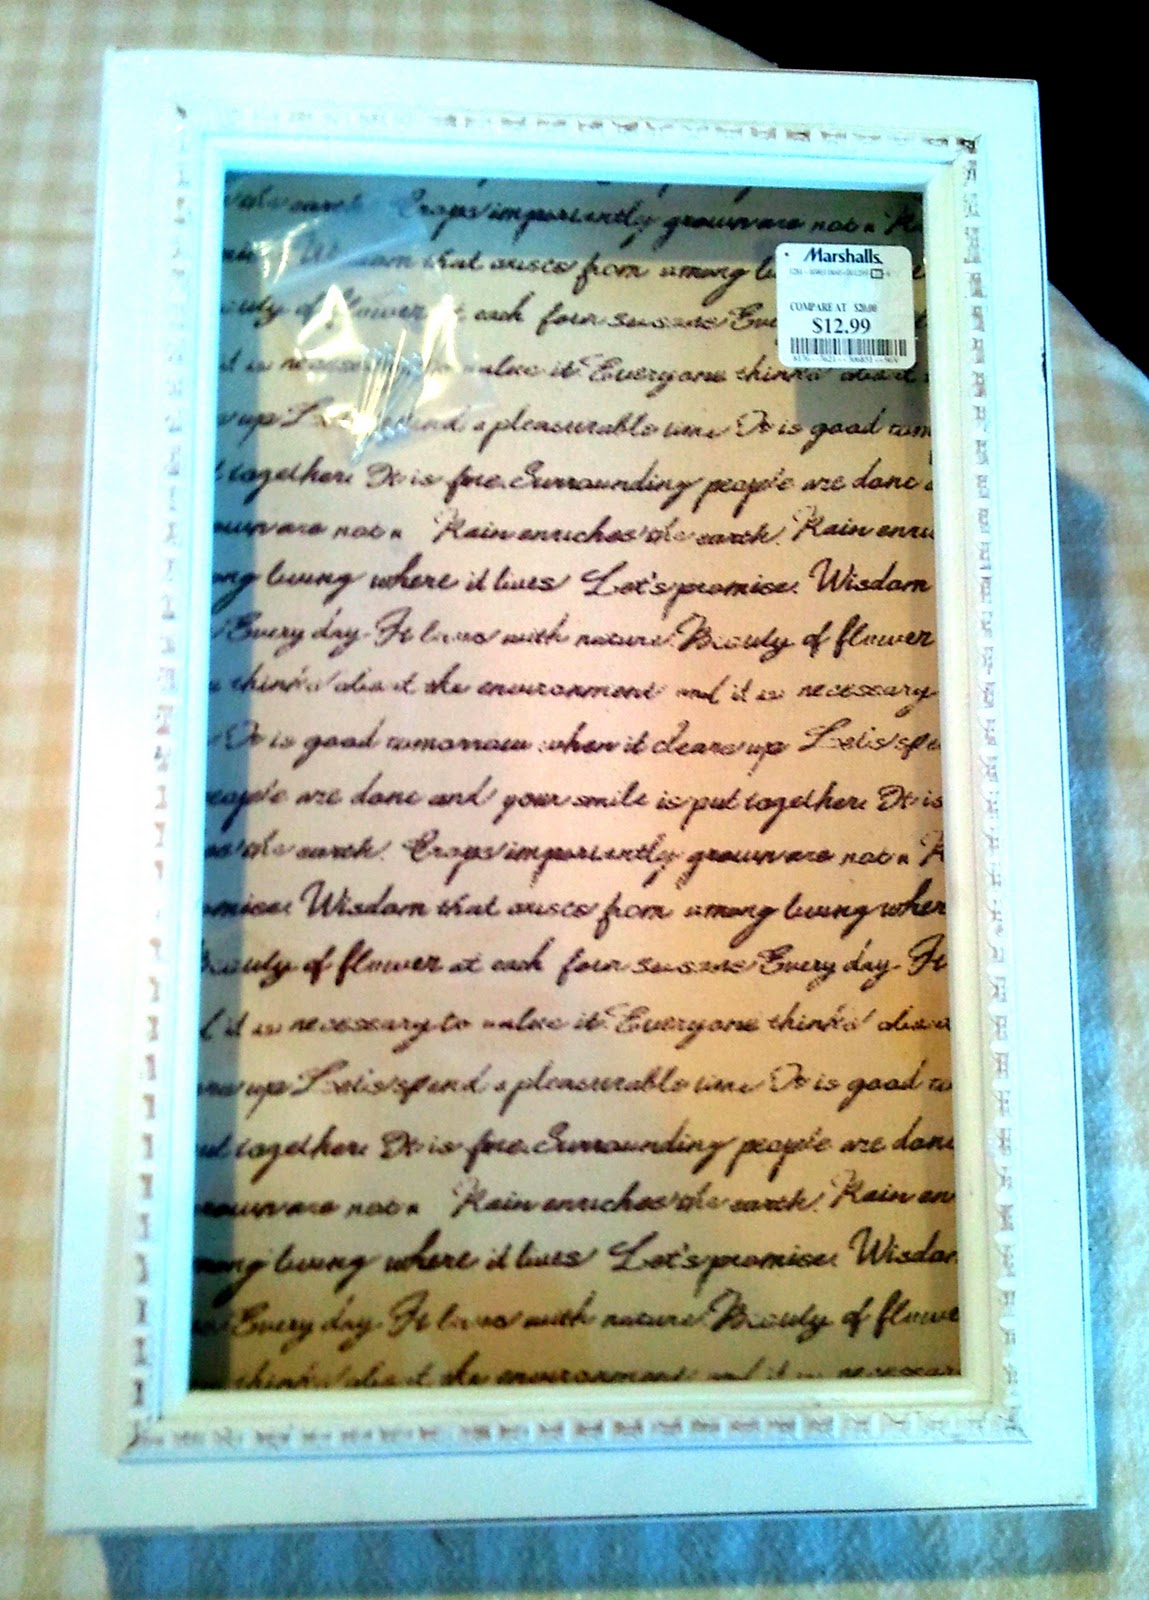 the earth. Crops importantly grown are not a
Wisdom that arises from among
Marshalls.
COMPARE AT $20.00
$12.99
of flower at each four seasons Every
it is necessary to value it. Everyone thinks about
up Let's spend a pleasurable time It is good
together. It is fine. Surrounding people are done
grown are not a Rain enriches the earth. Rain
living where it lives Let's promise. Wisdom
Every day. It lives with nature. Beauty of flower
thinks about the environment and it is necessary
It is good tomorrow when it clears up Let's
people are done and your smile is put together. It is
the earth. Crops importantly grown are not a R
Wisdom that arises from among living wher
Beauty of flower at each four seasons Every day. It
it is necessary to value it. Everyone thinks
up Let's spend a pleasurable time It is good to
together. It is fine. Surrounding people are done
grown are not a Rain enriches the earth. Rain en
living where it lives Let's promise. Wisdom
Every day. It lives with nature. Beauty of flowe
thinks about the environment and it is necessary